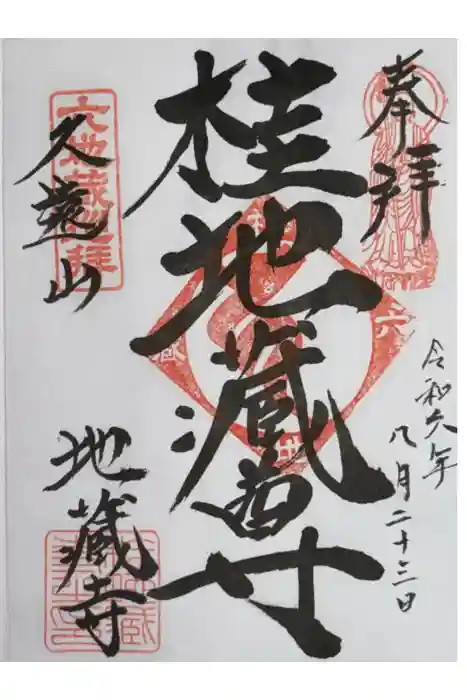 奉拝
令和六年
八月二十三日
桂地蔵尊
久遠山
地蔵寺
六地蔵巡拝